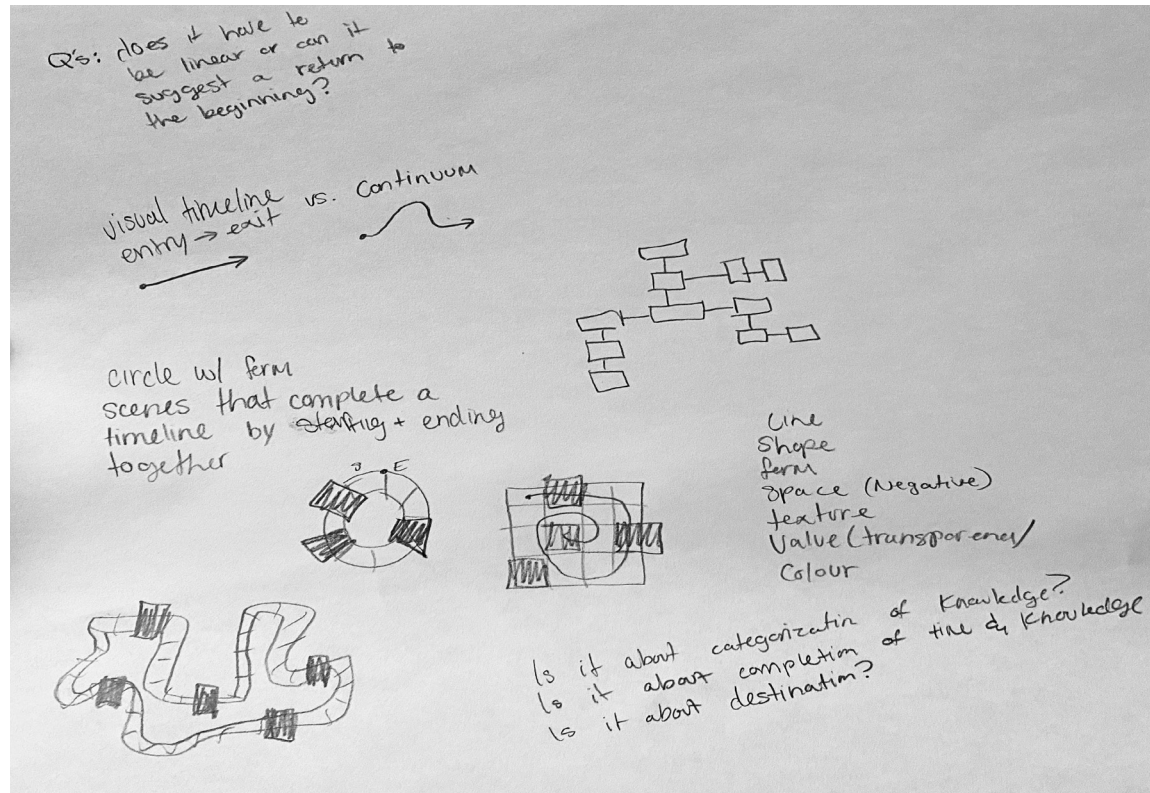 Q's: does it have to
be linear or can it
suggest a return to
the beginning?
visual timeline vs. continuum
entry → exit
circle w/ form
scenes that complete a
timeline by starting + ending
together
S E
Line
Shape
form
space (Negative)
texture
Value (transparency)
Colour
Is it about categorization of knowledge?
Is it about completion of time & knowledge
Is it about destination?